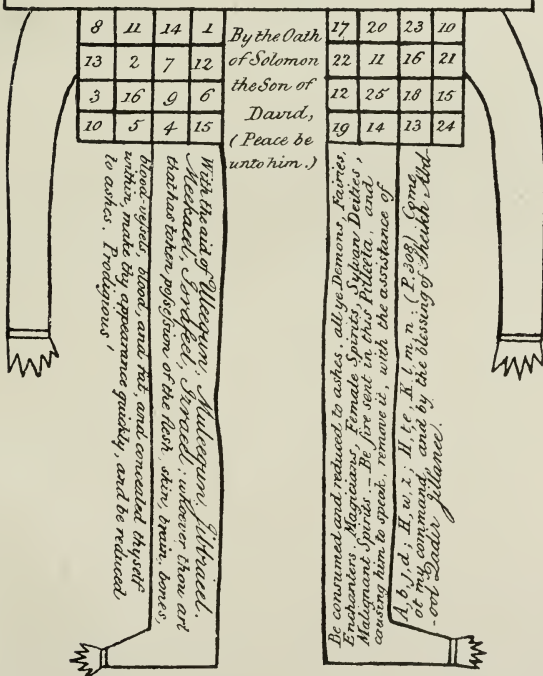 8 11 14 1
13 2 7 12
3 16 9 6
10 5 4 15
By the Oath
of Solomon
the Son of
David,
(Peace be
unto him.)
17 20 23 10
22 11 16 21
12 25 18 15
19 14 13 24
With the aid of Uleequn, Muleequn, Jibraeel,
Meekaeel, Israfeel, Izraeel; whoever thou art
that has taken possession of the flesh, skin, brain, bones,
blood-vessels, blood, and fat, and concealed thyself
within, make thy appearance quickly, and be reduced
to ashes. Prodigious!
Be consumed and reduced to ashes, all ye Demons, Fairies,
Enchanters, Magicians, Female Spirits, Sylvan Deities,
Malignant Spirits. — Be fire sent in this Puleeta, and
causing him to speak, remove it, with the assistance of
A, b, j, d; H, w, z; H, t, e; K, l, m, n: (P. 308) Come
at my command, and by the blessing of Sheikh Abd-
-ool Qadir Jillanee).